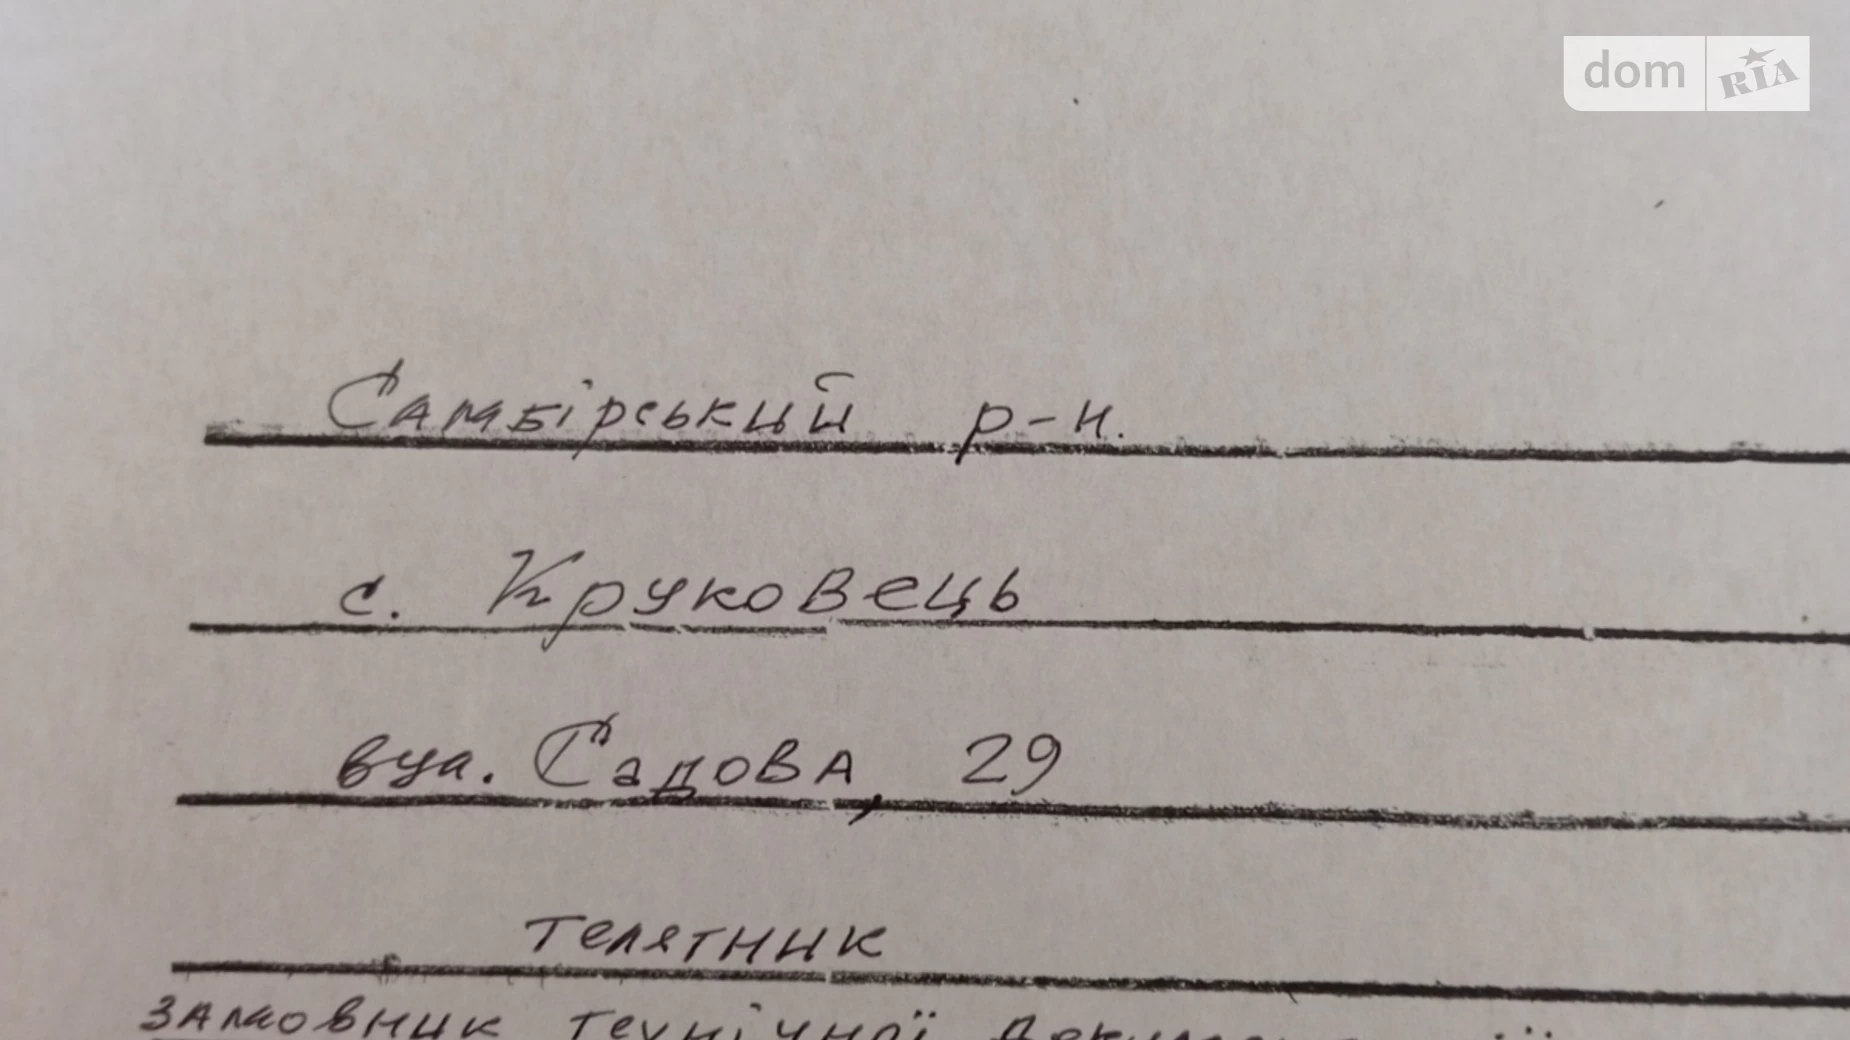 dom RIA
Самбірський р-н.
с. Круковець
вул. Садова, 29
Телятник
Замовник технічної документації